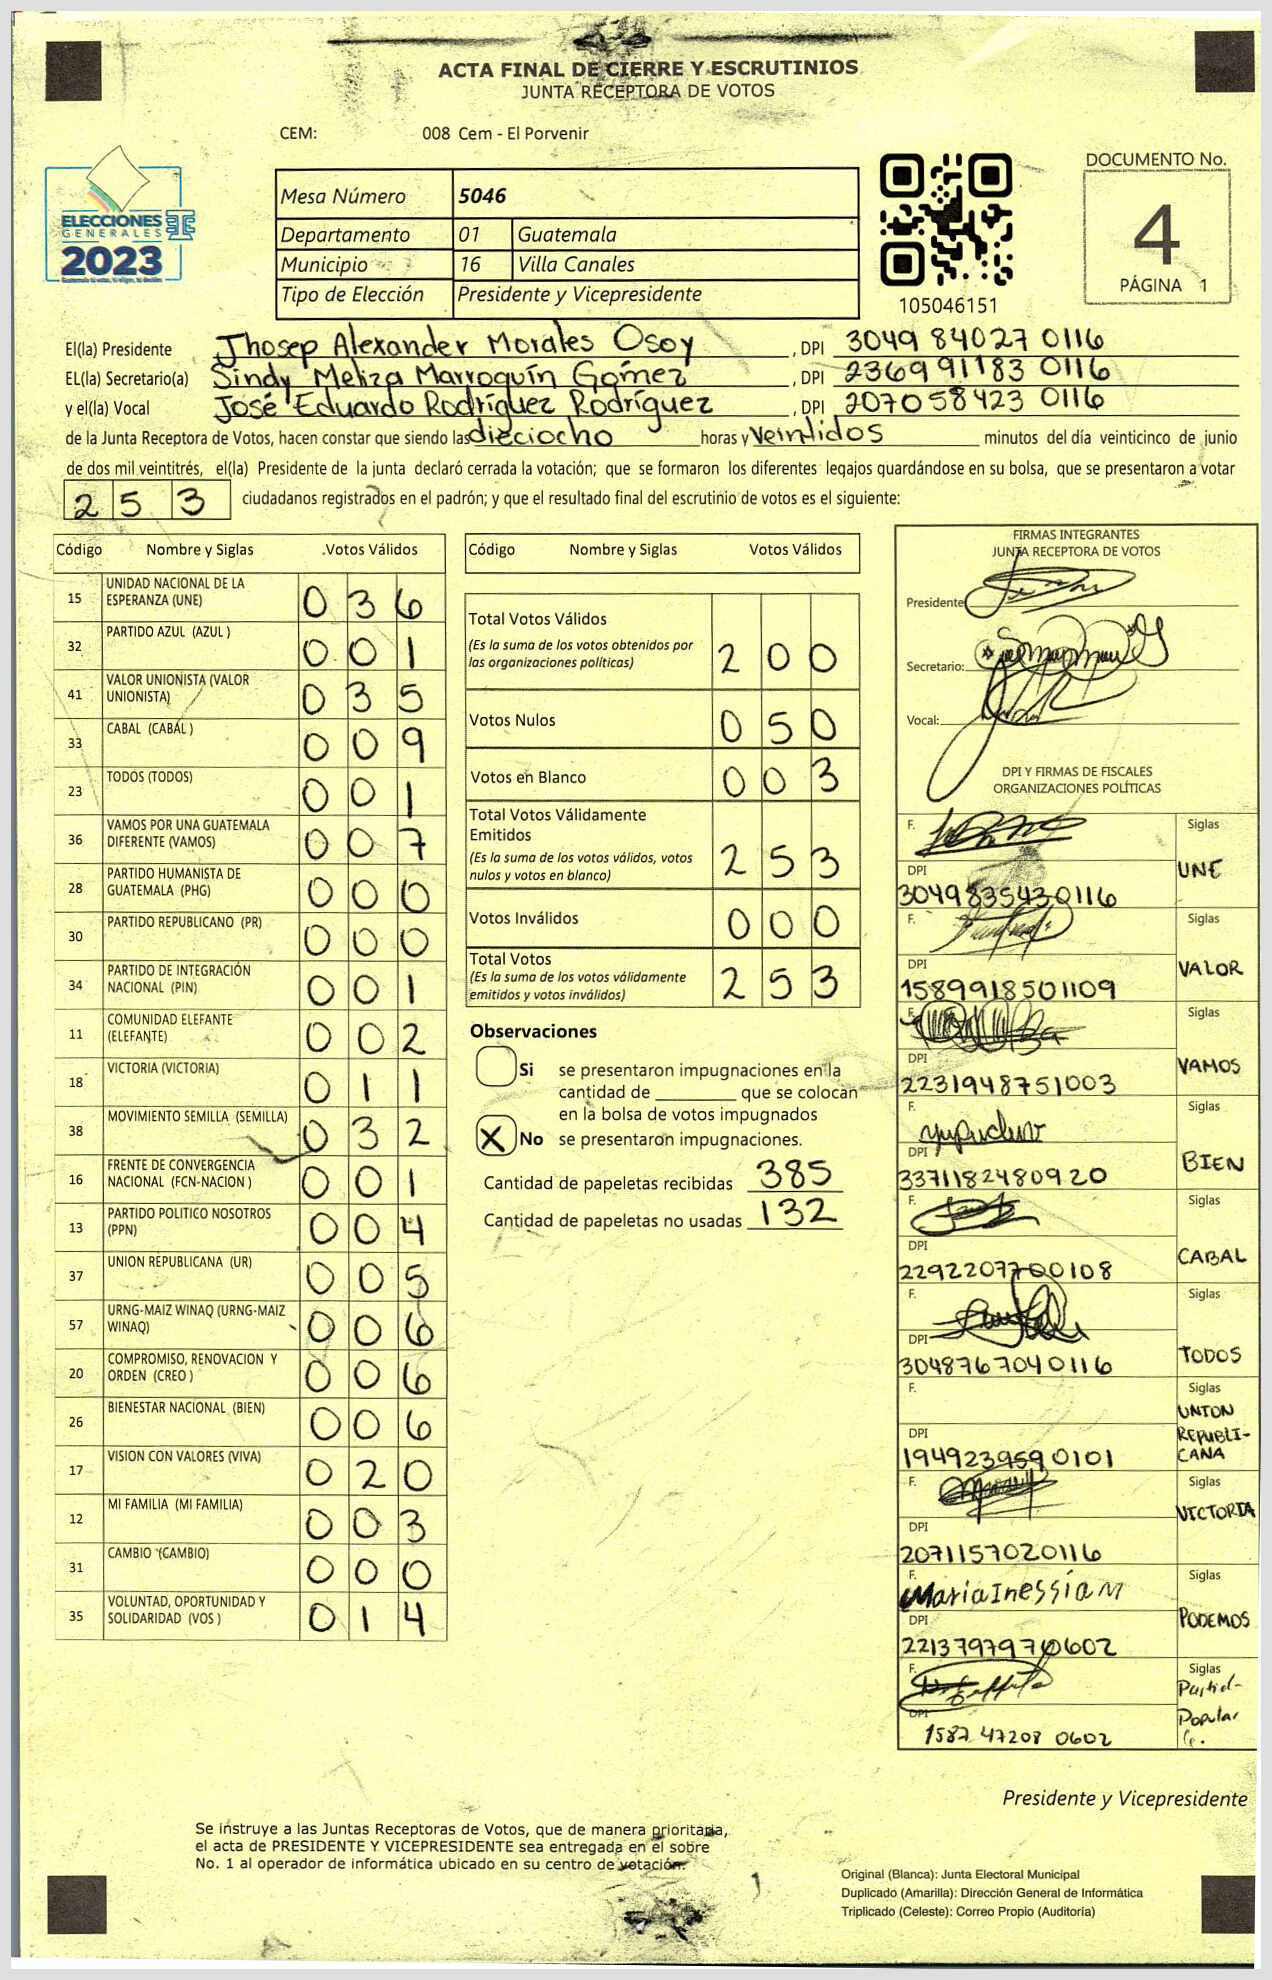 ACTA FINAL DE CIERRE Y ESCRUTINIOS
JUNTA RECEPTORA DE VOTOS
CEM: 008 Cem - El Porvenir
DOCUMENTO No.
4
PÁGINA 1
ELECCIONES
GENERALES
2023
Mesa Número 5046
Departamento 01 Guatemala
Municipio 16 Villa Canales
Tipo de Elección Presidente y Vicepresidente
105046151
El(la) Presidente Jhosep Alexander Morales Osoy , DPI 3049 84027 0116
EL(la) Secretario(a) Sindy Meliza Marroquín Gómez , DPI 2369 91183 0116
y el(la) Vocal José Eduardo Rodríguez Rodríguez , DPI 2070 58423 0116
de la Junta Receptora de Votos, hacen constar que siendo las dieciocho horas y veintidos minutos del día veinticinco de junio
de dos mil veintitrés, el(la) Presidente de la junta declaró cerrada la votación; que se formaron los diferentes legajos guardándose en su bolsa, que se presentaron a votar
2 5 3 ciudadanos registrados en el padrón; y que el resultado final del escrutinio de votos es el siguiente:
Código Nombre y Siglas Votos Válidos
15 UNIDAD NACIONAL DE LA
ESPERANZA (UNE) 0 3 6
32 PARTIDO AZUL (AZUL ) 0 0 1
41 VALOR UNIONISTA (VALOR
UNIONISTA) 0 3 5
33 CABAL (CABAL ) 0 0 9
23 TODOS (TODOS) 0 0 1
36 VAMOS POR UNA GUATEMALA
DIFERENTE (VAMOS) 0 0 7
28 PARTIDO HUMANISTA DE
GUATEMALA (PHG) 0 0 0
30 PARTIDO REPUBLICANO (PR) 0 0 0
34 PARTIDO DE INTEGRACIÓN
NACIONAL (PIN) 0 0 1
11 COMUNIDAD ELEFANTE
(ELEFANTE) 0 0 2
18 VICTORIA (VICTORIA) 0 1 1
38 MOVIMIENTO SEMILLA (SEMILLA) 0 3 2
16 FRENTE DE CONVERGENCIA
NACIONAL (FCN-NACION ) 0 0 1
13 PARTIDO POLITICO NOSOTROS
(PPN) 0 0 4
37 UNION REPUBLICANA (UR) 0 0 5
57 URNG-MAIZ WINAQ (URNG-MAIZ
WINAQ) 0 0 6
20 COMPROMISO, RENOVACION Y
ORDEN (CREO ) 0 0 6
26 BIENESTAR NACIONAL (BIEN) 0 0 6
17 VISION CON VALORES (VIVA) 0 2 0
12 MI FAMILIA (MI FAMILIA) 0 0 3
31 CAMBIO (CAMBIO) 0 0 0
35 VOLUNTAD, OPORTUNIDAD Y
SOLIDARIDAD (VOS ) 0 1 4
Código Nombre y Siglas Votos Válidos
Total Votos Válidos
(Es la suma de los votos obtenidos por
las organizaciones políticas) 2 0 0
Votos Nulos 0 5 0
Votos en Blanco 0 0 3
Total Votos Válidamente
Emitidos
(Es la suma de los votos válidos, votos
nulos y votos en blanco) 2 5 3
Votos Inválidos 0 0 0
Total Votos
(Es la suma de los votos válidamente
emitidos y votos inválidos) 2 5 3
Observaciones
Si se presentaron impugnaciones en la
cantidad de ________ que se colocan
en la bolsa de votos impugnados
X No se presentaron impugnaciones.
Cantidad de papeletas recibidas 385
Cantidad de papeletas no usadas 132
FIRMAS INTEGRANTES
JUNTA RECEPTORA DE VOTOS
Presidente
Secretario:
Vocal:
DPI Y FIRMAS DE FISCALES
ORGANIZACIONES POLÍTICAS
F. Siglas
DPI UNE
3049835430116
F. Siglas
DPI VALOR
1589918501109
F. Siglas
DPI VAMOS
2231948751003
F. Siglas
DPI BIEN
3371182480920
F. Siglas
DPI CABAL
2292207700108
F. Siglas
DPI TODOS
3048767040116
F. Siglas
UNION
DPI REPUBLI-
1949239590101 CANA
F. Siglas
DPI VICTORIA
2071157020116
F. Siglas
Maria Inessíam
DPI PODEMOS
2213797970602
F. Siglas
DPI Popular
1587 47208 0602
Presidente y Vicepresidente
Se instruye a las Juntas Receptoras de Votos, que de manera prioritaria,
el acta de PRESIDENTE Y VICEPRESIDENTE sea entregada en el sobre
No. 1 al operador de informática ubicado en su centro de votación.
Original (Blanca): Junta Electoral Municipal
Duplicado (Amarilla): Dirección General de Informática
Triplicado (Celeste): Correo Propio (Auditoría)